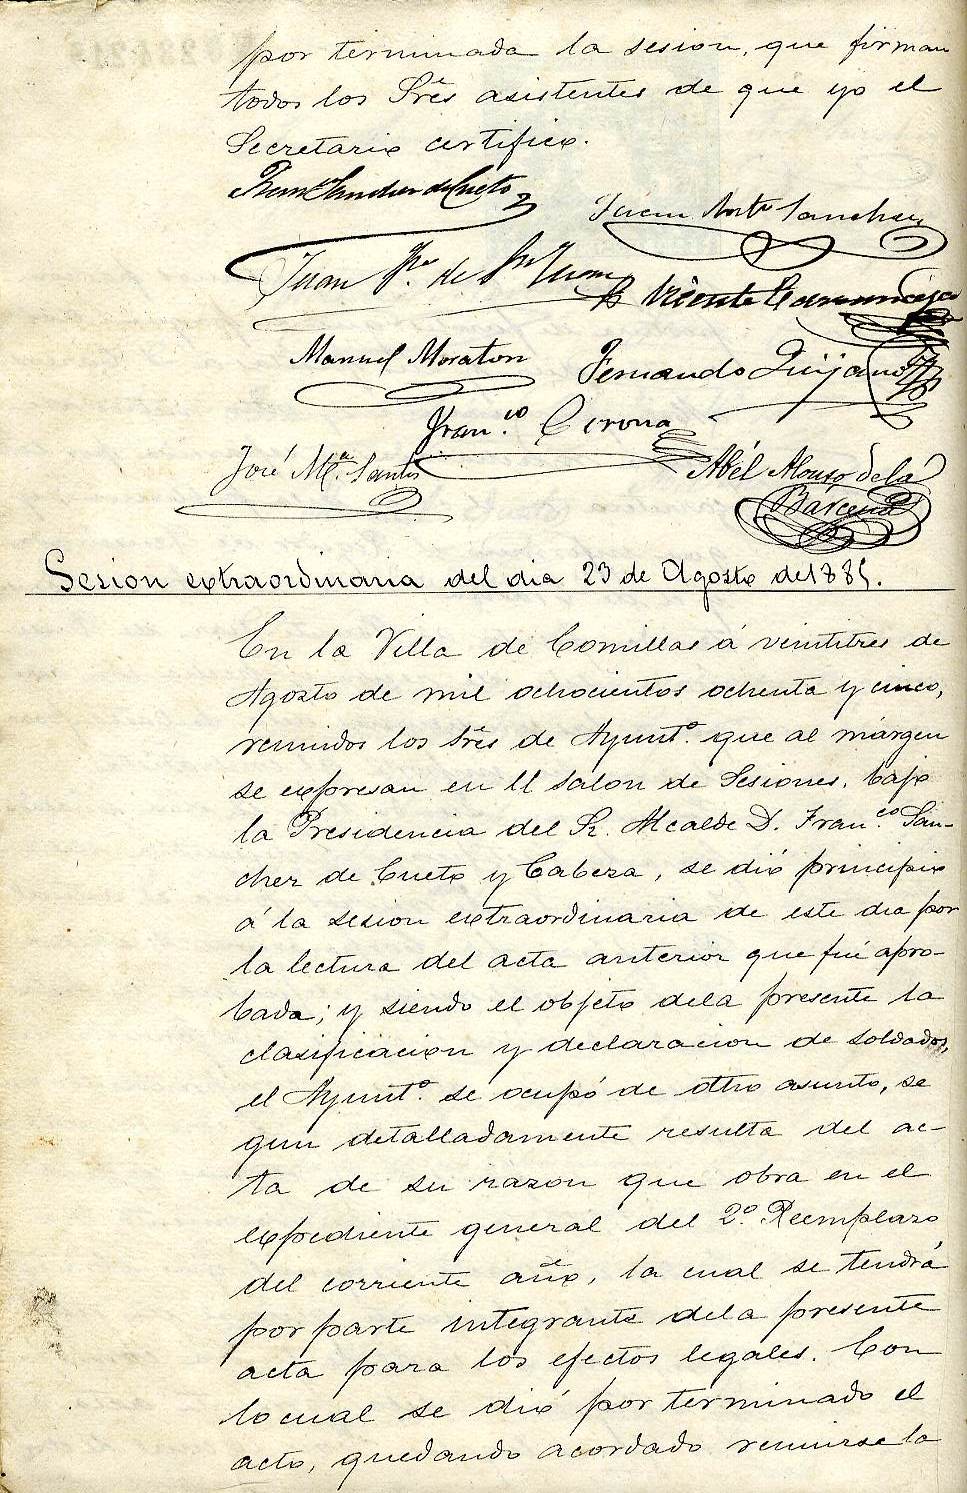 por terminada la sesion, que firman
todos los Srẽs asistentes de que yo el
Secretario certifico.
Sanchez de Cueto
Juan Antº Sanchez
Juan de
Vicente
Manuel Moraton
Fernando Quijano
Franco Gerona
José Mª. Santos
Abél Alonso de la
Bárcena
Sesion extraordinaria del dia 23 de Agosto de 1885.
En la Villa de Comillas á veintitres de
Agosto de mil ochocientos ochenta y cinco,
reunidos los Srẽs de Ayuntº. que al márgen
se expresan en el salon de Sesiones, bajo
la Presidencia del Sr. Alcalde D. Franco San-
chez de Cueto y Cabeza, se dió principio
á la sesion extraordinaria de este dia por
la lectura del acta anterior que fué apro-
bada; y siendo el objeto dela presente la
clasificacion y declaracion de soldados,
el Ayuntº. se ocupó de otro asunto, se
gun detalladamente resulta del ac-
ta de su razon que obra en el
expediente general del 2º. Reemplazo
del corriente año, la cual se tendrá
por parte integrante dela presente
acta para los efectos legales. Con
lo cual se dió por terminado el
acto, quedando acordado reunirse la